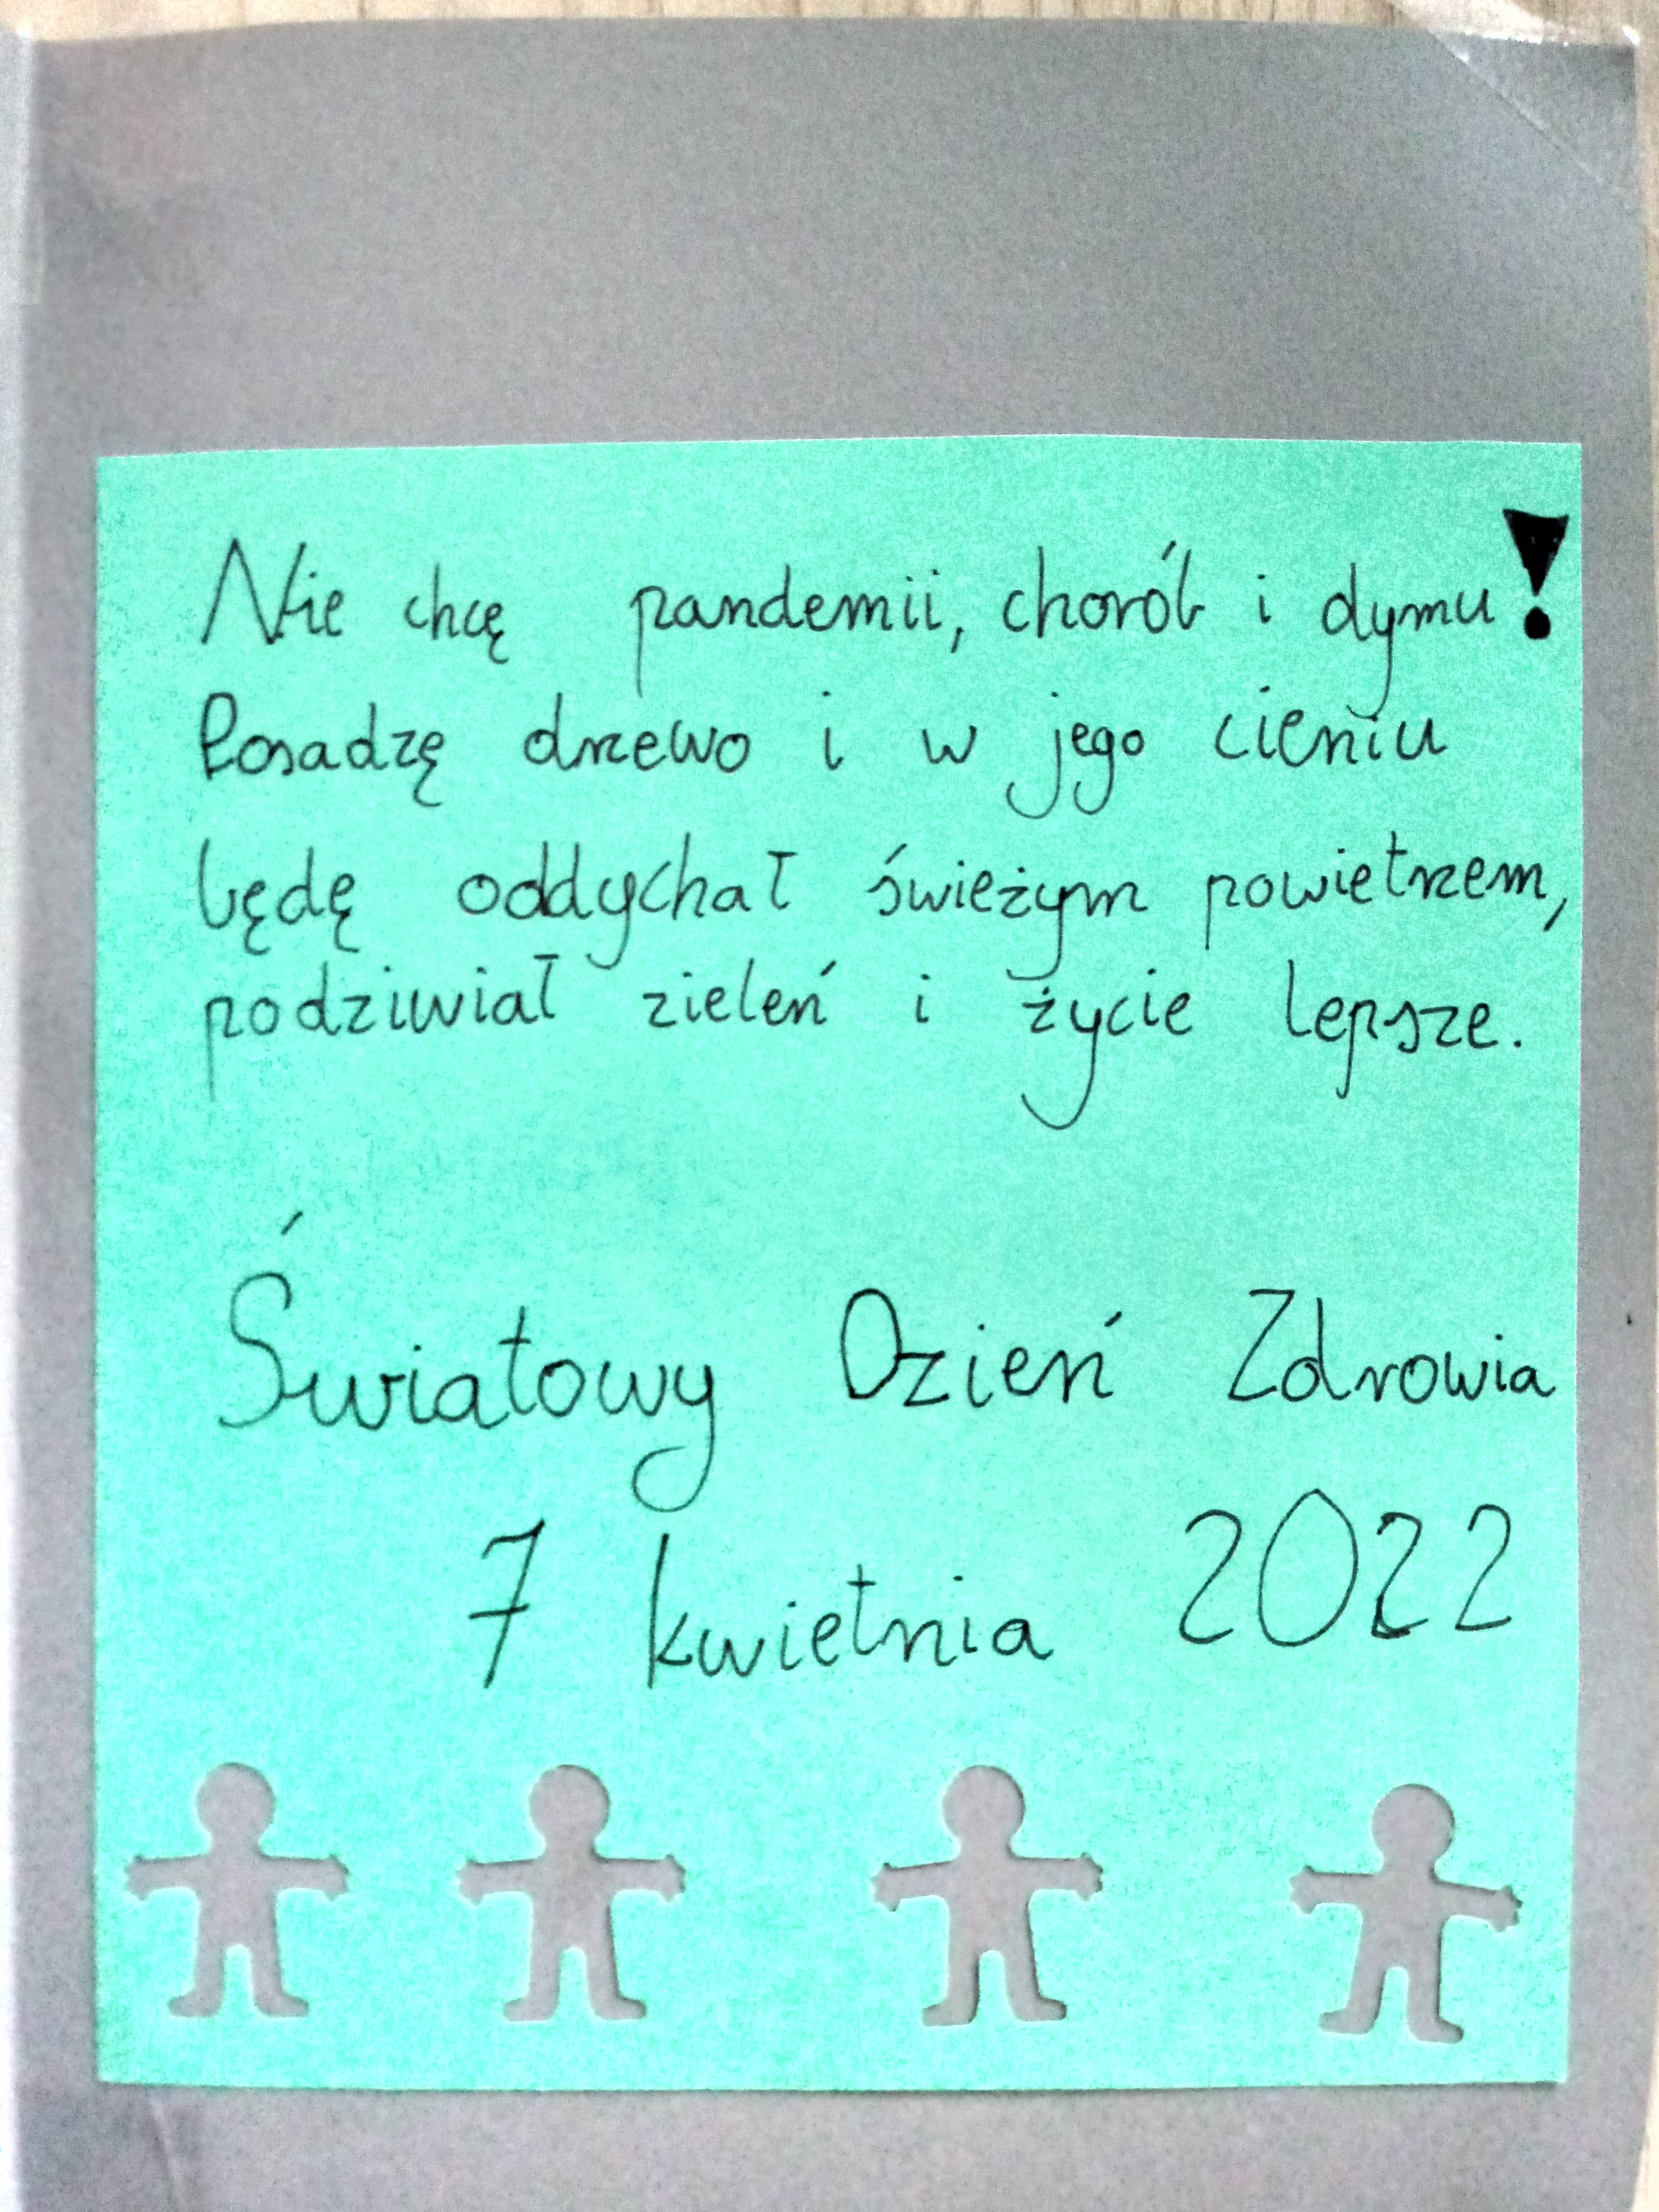 Nie chcę pandemii, chorób i dymu!
Posadzę drzewo i w jego cieniu
będę oddychał świeżym powietrzem,
podziwiał zieleń i życie lepsze.
Światowy Dzień Zdrowia
7 kwietnia 2022